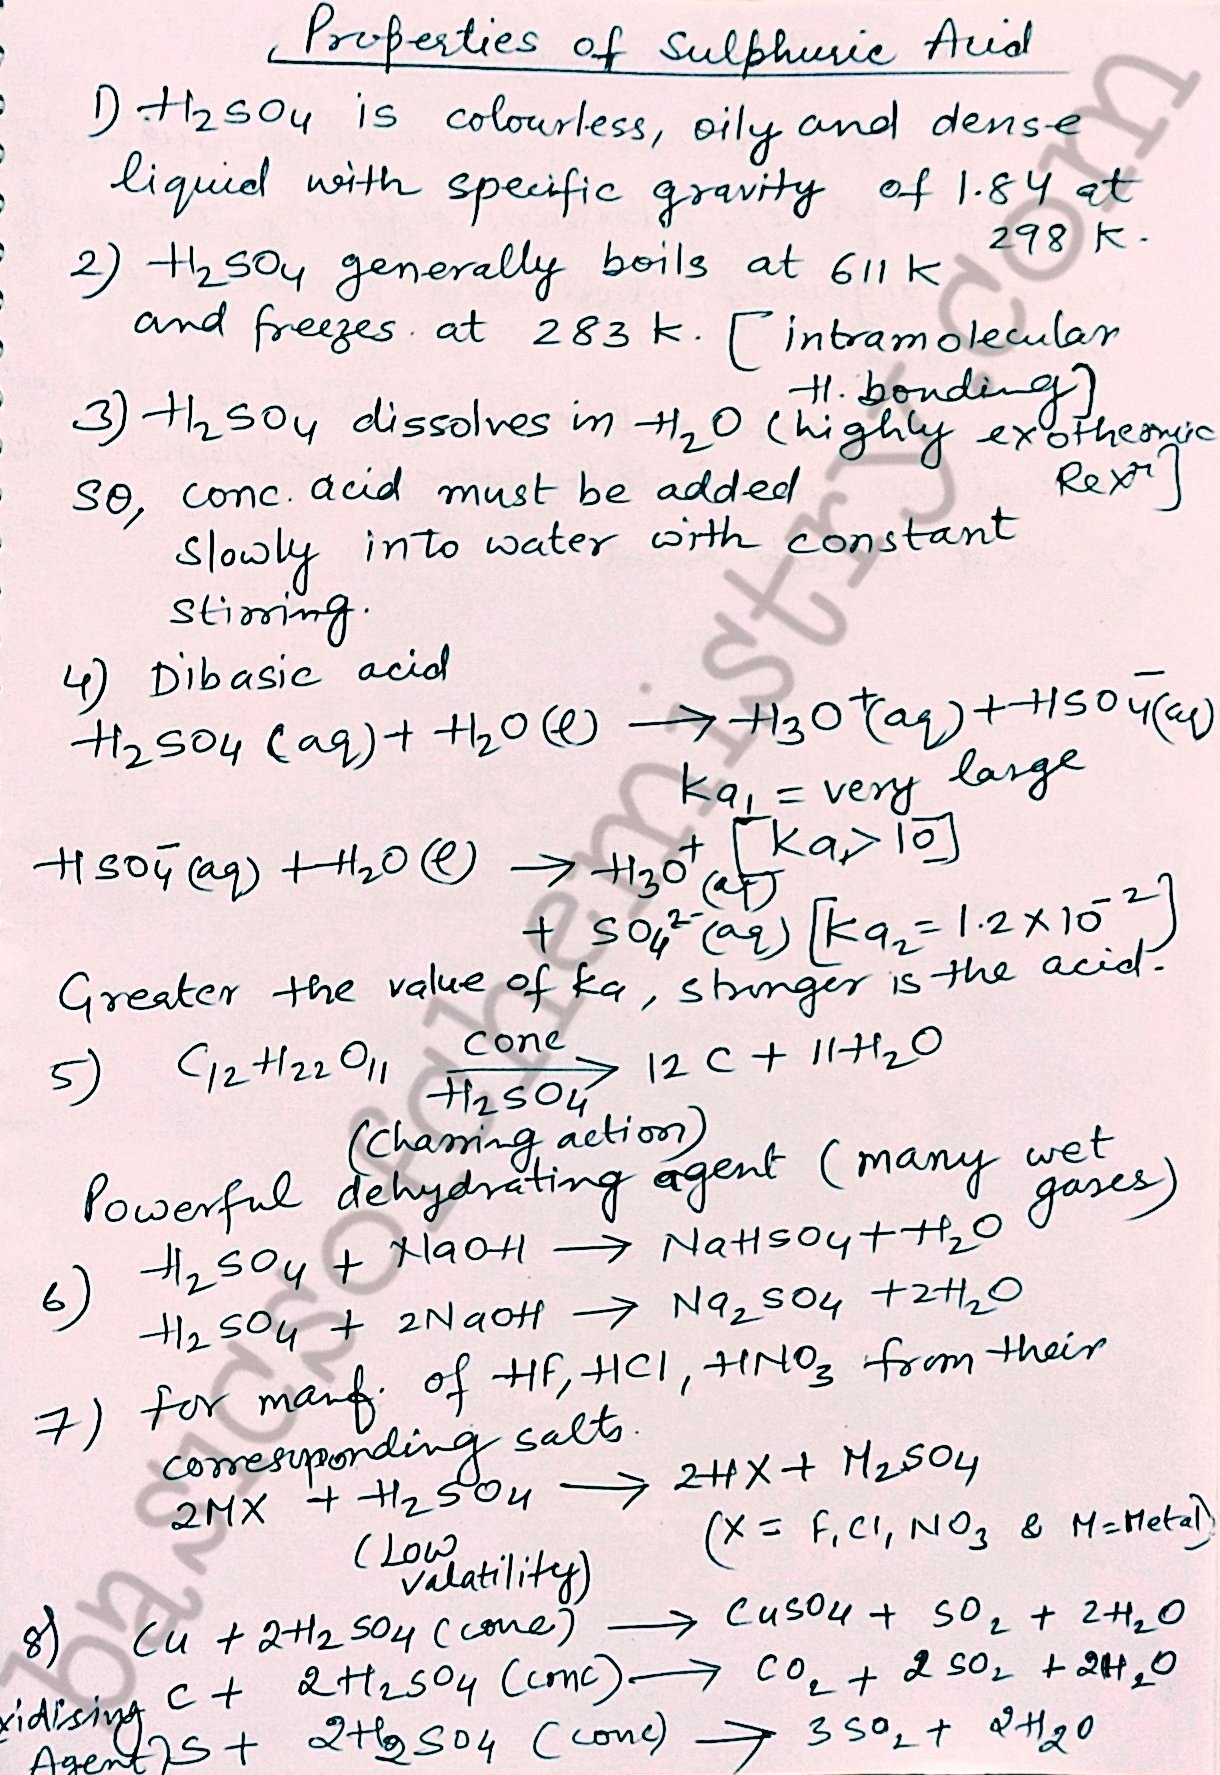 Properties of Sulphuric Acid
1) H2SO4 is colourless, oily and dense
liquid with specific gravity of 1.84 at
298 K.
2) H2SO4 generally boils at 611 K
and freezes at 283 K. [intramolecular
H. bonding]
3) H2SO4 dissolves in H2O (highly exothermic
Rexn]
SO, conc. acid must be added
slowly into water with constant
stirring.
4) Dibasic acid
H2SO4 (aq) + H2O (l) → H3O+(aq) + HSO4-(aq)
Ka1 = very large
[Ka1 > 10]
HSO4-(aq) + H2O (l) → H3O+ (aq)
+ SO4^2-(aq) [Ka2 = 1.2 x 10^-2]
Greater the value of Ka, stronger is the acid.
5) C12H22O11 conc H2SO4 → 12C + 11H2O
(Charring action)
Powerful dehydrating agent (many wet
gases)
6) H2SO4 + NaOH → NaHSO4 + H2O
H2SO4 + 2NaOH → Na2SO4 + 2H2O
7) for manf. of HF, HCl, HNO3 from their
corresponding salts.
2MX + H2SO4 → 2HX + M2SO4
(Low
valatility)
(X = F, Cl, NO3 & M = Metal)
8) Cu + 2H2SO4 (conc) → CuSO4 + SO2 + 2H2O
C + 2H2SO4 (conc) → CO2 + 2SO2 + 2H2O
xidising
Agent) S + 2H2SO4 (conc) → 3SO2 + 2H2O
basicsofchemistry.com